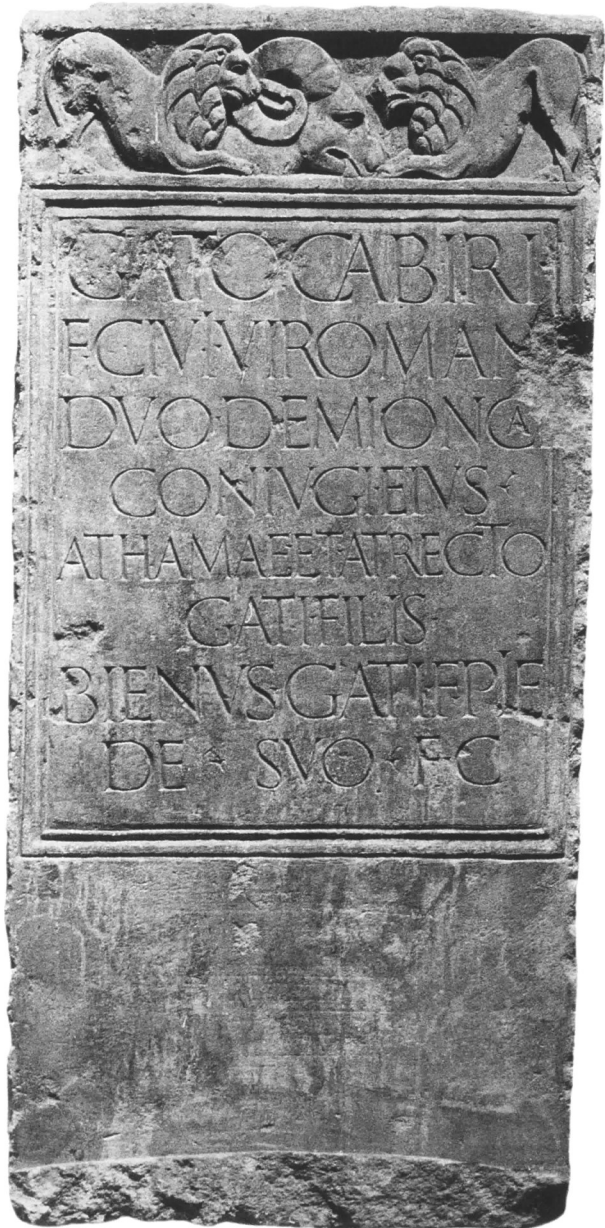 GATO·CABIRI·
F·CIVI·VIROMAN
DVO·DEMIONCA
CONIVGI·EIVS
ATHAMAE·ET·ATRECTO
GATI·FILIS
BIENVS·GATI·F·PIE
DE SVO F·C